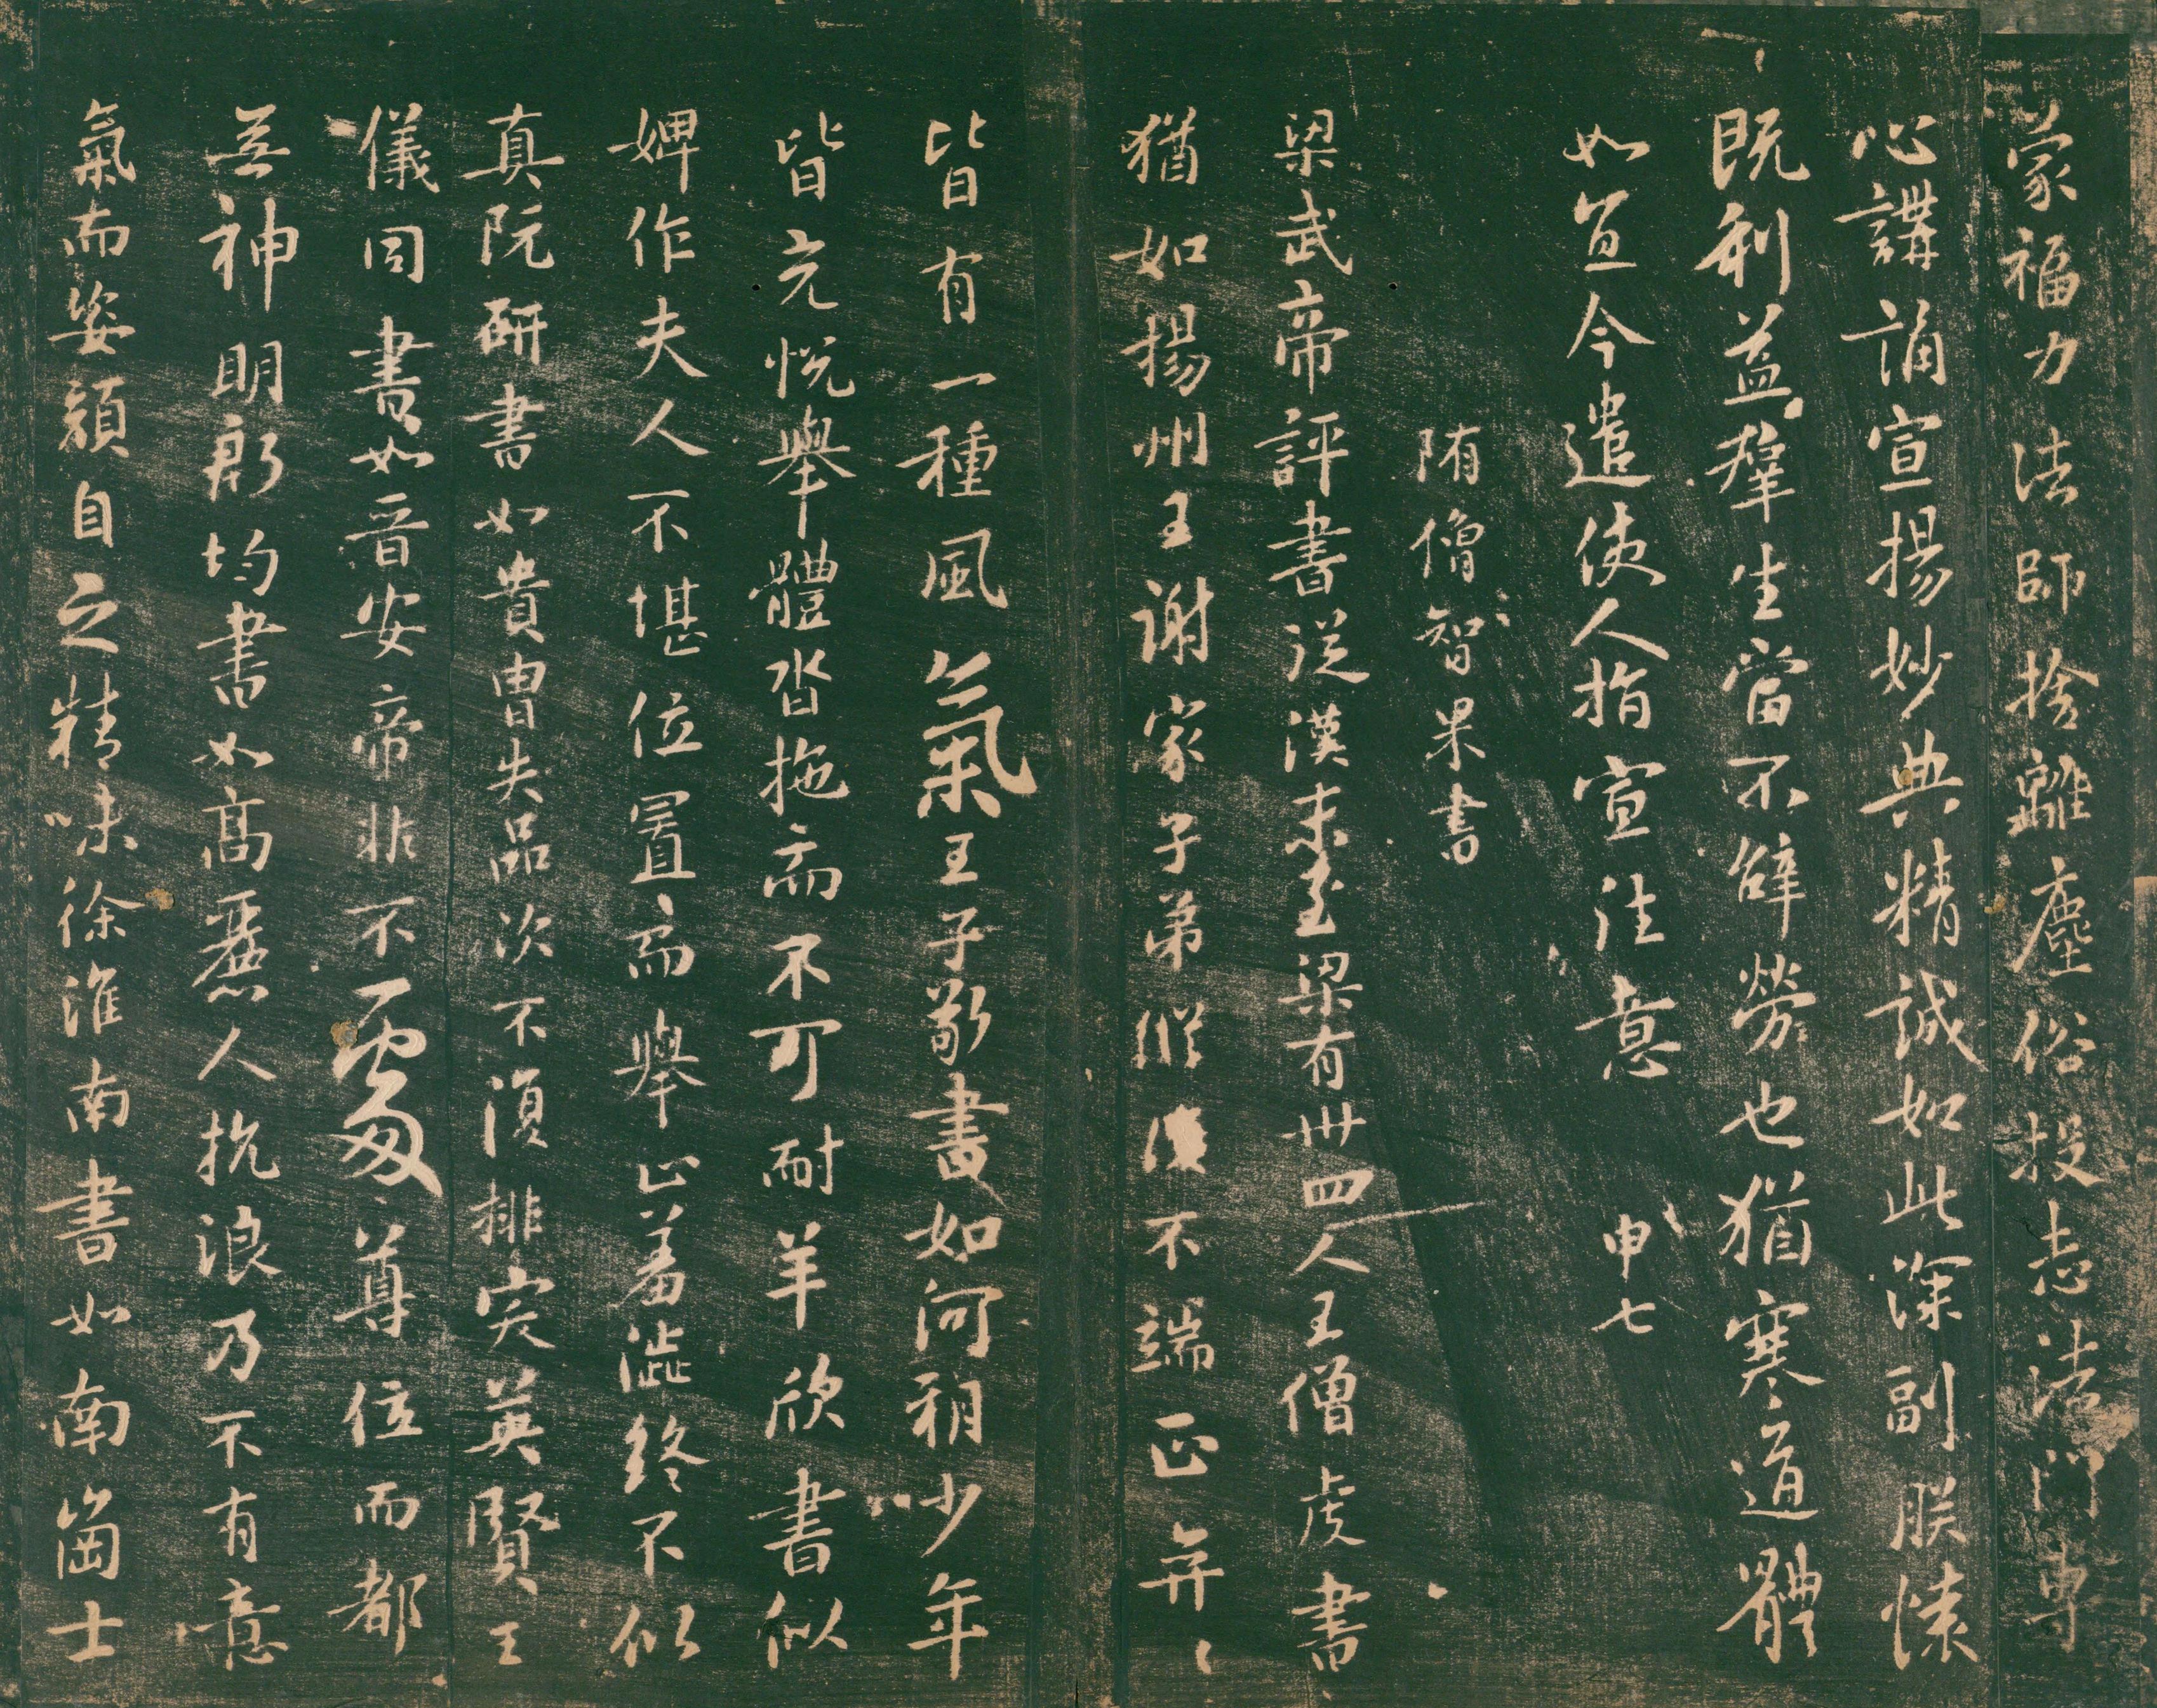 蒙福力法師捨離塵俗投志法門専
心講誦宣揚妙典精誠如此深副朕懐
既利益群生當不辝勞也猶寒道體
如宜今遣使人指宣往意 申七
隋僧智果書
梁武帝評書從漢末至梁有卅四人王僧虔書
猶如揚州王謝家子弟縱復不端正弈〻
皆有一種風氣王子敬書如河朔少年
皆充悦舉體沓拖而不可耐羊欣書似
婢作夫人不堪位置而舉止羞澁終不似
真阮研書如貴胄失品次不湏排突英賢王
儀同書如晉安帝非不處尊位而都
無神明𢈔均書如高麗人抗浪乃不有意
氣而姿顔自乏精味徐淮南書如南崗士